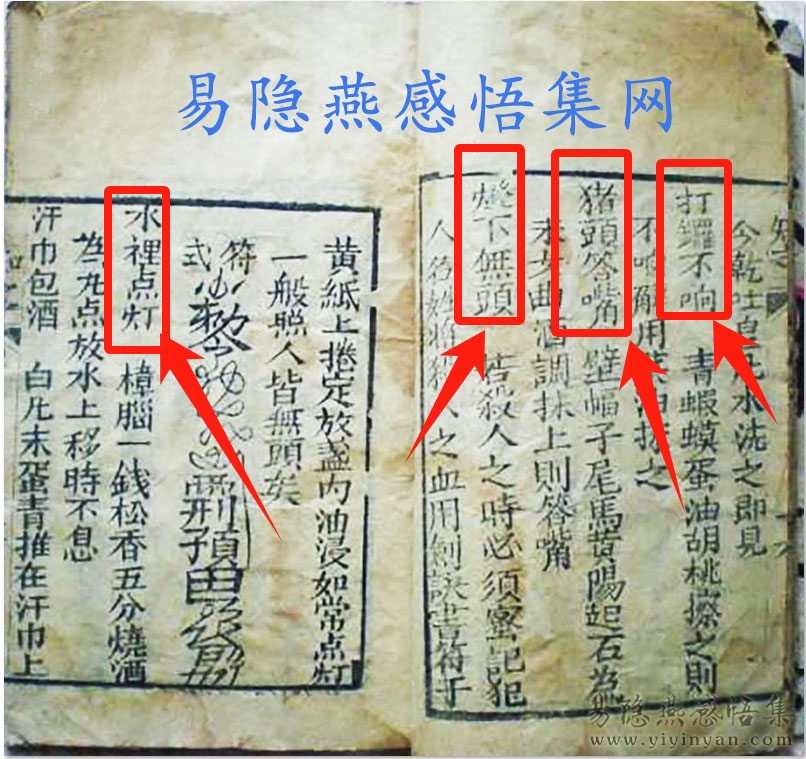 易隐燕感悟集网
今乾吐皂凡水洗之即見
打鑼不响 青蝦蟆蛋油胡桃擦之則
不响解用菜油抹之
猪頭答嘴 壁蝠子尾馬黄陽起石為
末女曲酒調抹上則答嘴
燈下無頭 若殺人之時必須蜜記犯
人名姓將殺人之血用劍訣書符于
黄紙上捲定放盞内油浸如常点灯
一般照人皆無頭矣
符式
水裡点灯 樟腦一錢松香五分燒酒
為丸点放水上移時不息
汗巾包酒 白凡末蛋青推在汗巾上
易隐燕感悟集
www.yiyinyan.com